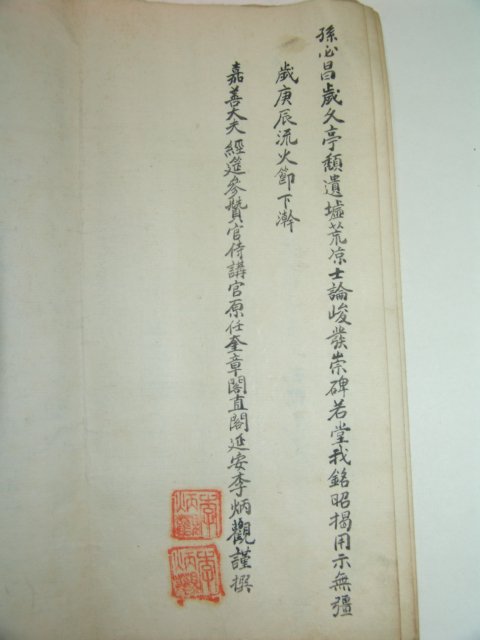 孫必昌歲久亭頹遺墟荒凉士論峻發崇碑若堂我銘昭揭用示無疆
歲庚辰流火節下澣
嘉善大夫經筵參贊官侍講官原任奎章閣直閣延安李炳觀謹撰
李炳觀
李炳觀